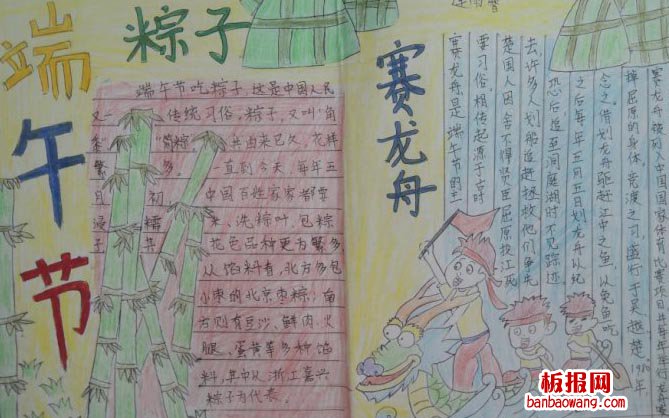 端午节
粽子
端午节吃粽子，这是中国人民
又一 传统习俗，粽子，又叫“角
黍” “筒粽” 其由来已久，花样
繁 多。 一直到今天，每年五
月 初 中国百姓家家都要
浸 糯 米、洗粽叶，包粽
子 其 花色品种更为繁多
从馅料看，北方多包
小枣的北京枣粽；南
方则有豆沙、鲜肉、火
腿、蛋黄等多种馅
料，其中以浙江嘉兴
粽子为代表
赛龙舟
赛龙舟是端午节的主
要习俗，相传起源于古时
楚国人因舍不得贤臣屈原投江死
去许多人划船追赶拯救他们争先
恐后，追至洞庭湖时不见踪迹
之后每年五月五日划龙舟以纪
念之。借划龙舟驱赶江中之鱼，以免鱼吃
掉屈原的身体，竞渡之习，盛行于吴、越、楚。1980年
板报网
banbaowang.com